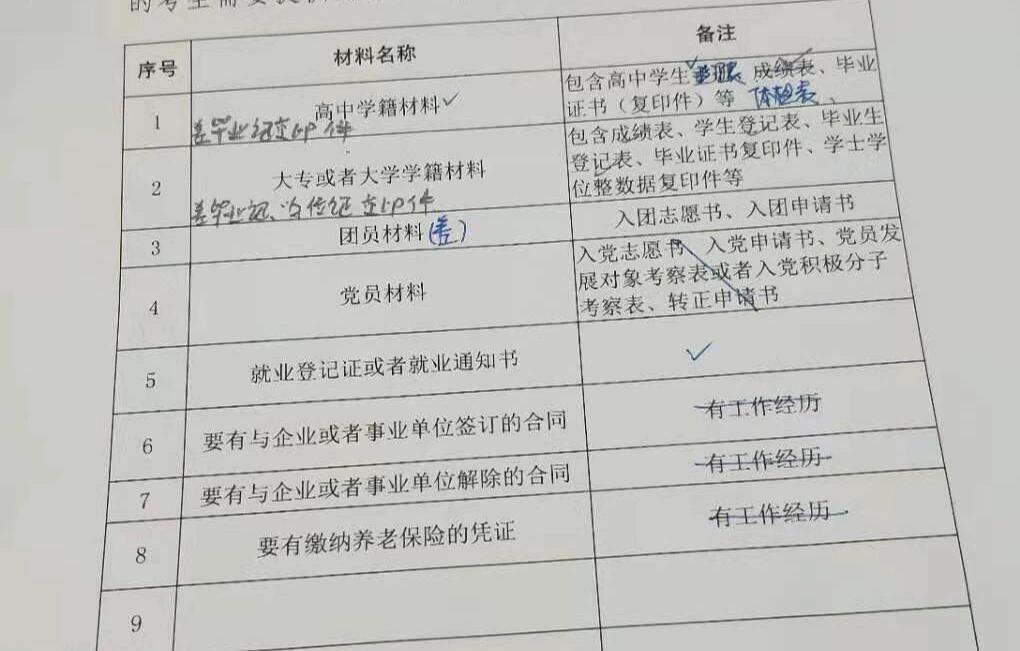 序号 材料名称 备注
1 高中学籍材料✓ 包含高中学生 成绩表、毕业
证书（复印件）等 体检表、
差毕业证复印件
2 大专或者大学学籍材料 包含成绩表、学生登记表、毕业生
登记表、毕业证书复印件、学士学
位整数据复印件等
差毕业证、学位证复印件
3 团员材料(差) 入团志愿书、入团申请书
4 党员材料 入党志愿书、入党申请书、党员发
展对象考察表或者入党积极分子
考察表、转正申请书
5 就业登记证或者就业通知书 ✓
6 要有与企业或者事业单位签订的合同 有工作经历
7 要有与企业或者事业单位解除的合同 有工作经历
8 要有缴纳养老保险的凭证 有工作经历
9